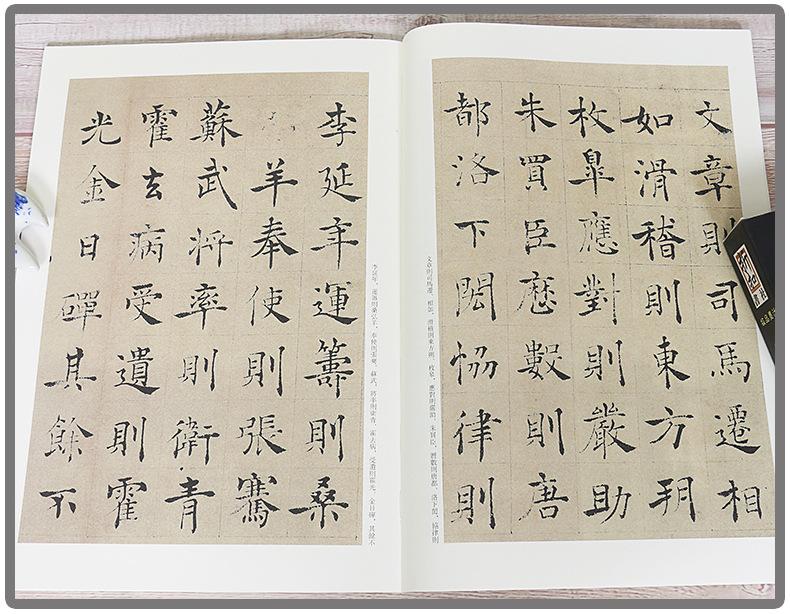 文章則司馬遷相
如滑稽則東方朔
枚皐應對則嚴助
朱買臣歷數則唐
都洛下閎恊律則
文章則司馬遷、相如，滑稽則東方朔、枚皋，應對則嚴助、朱買臣，曆數則唐都、洛下閎，協律則
李延年運籌則桑
羊奉使則張騫
蘇武將率則衛青
霍去病受遺則霍
光金日磾其餘不
李延年，運籌則桑弘羊，奉使則張騫、蘇武，將率則衛青、霍去病，受遺則霍光、金日磾，其餘不